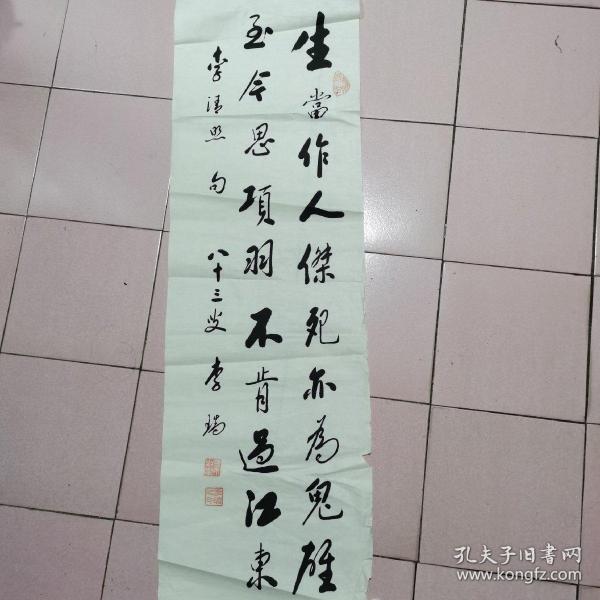 生當作人傑死亦為鬼雄
至今思項羽不肯過江東
李清照句 八十三叟 李瑞
孔夫子旧書网
www.kongfz.com